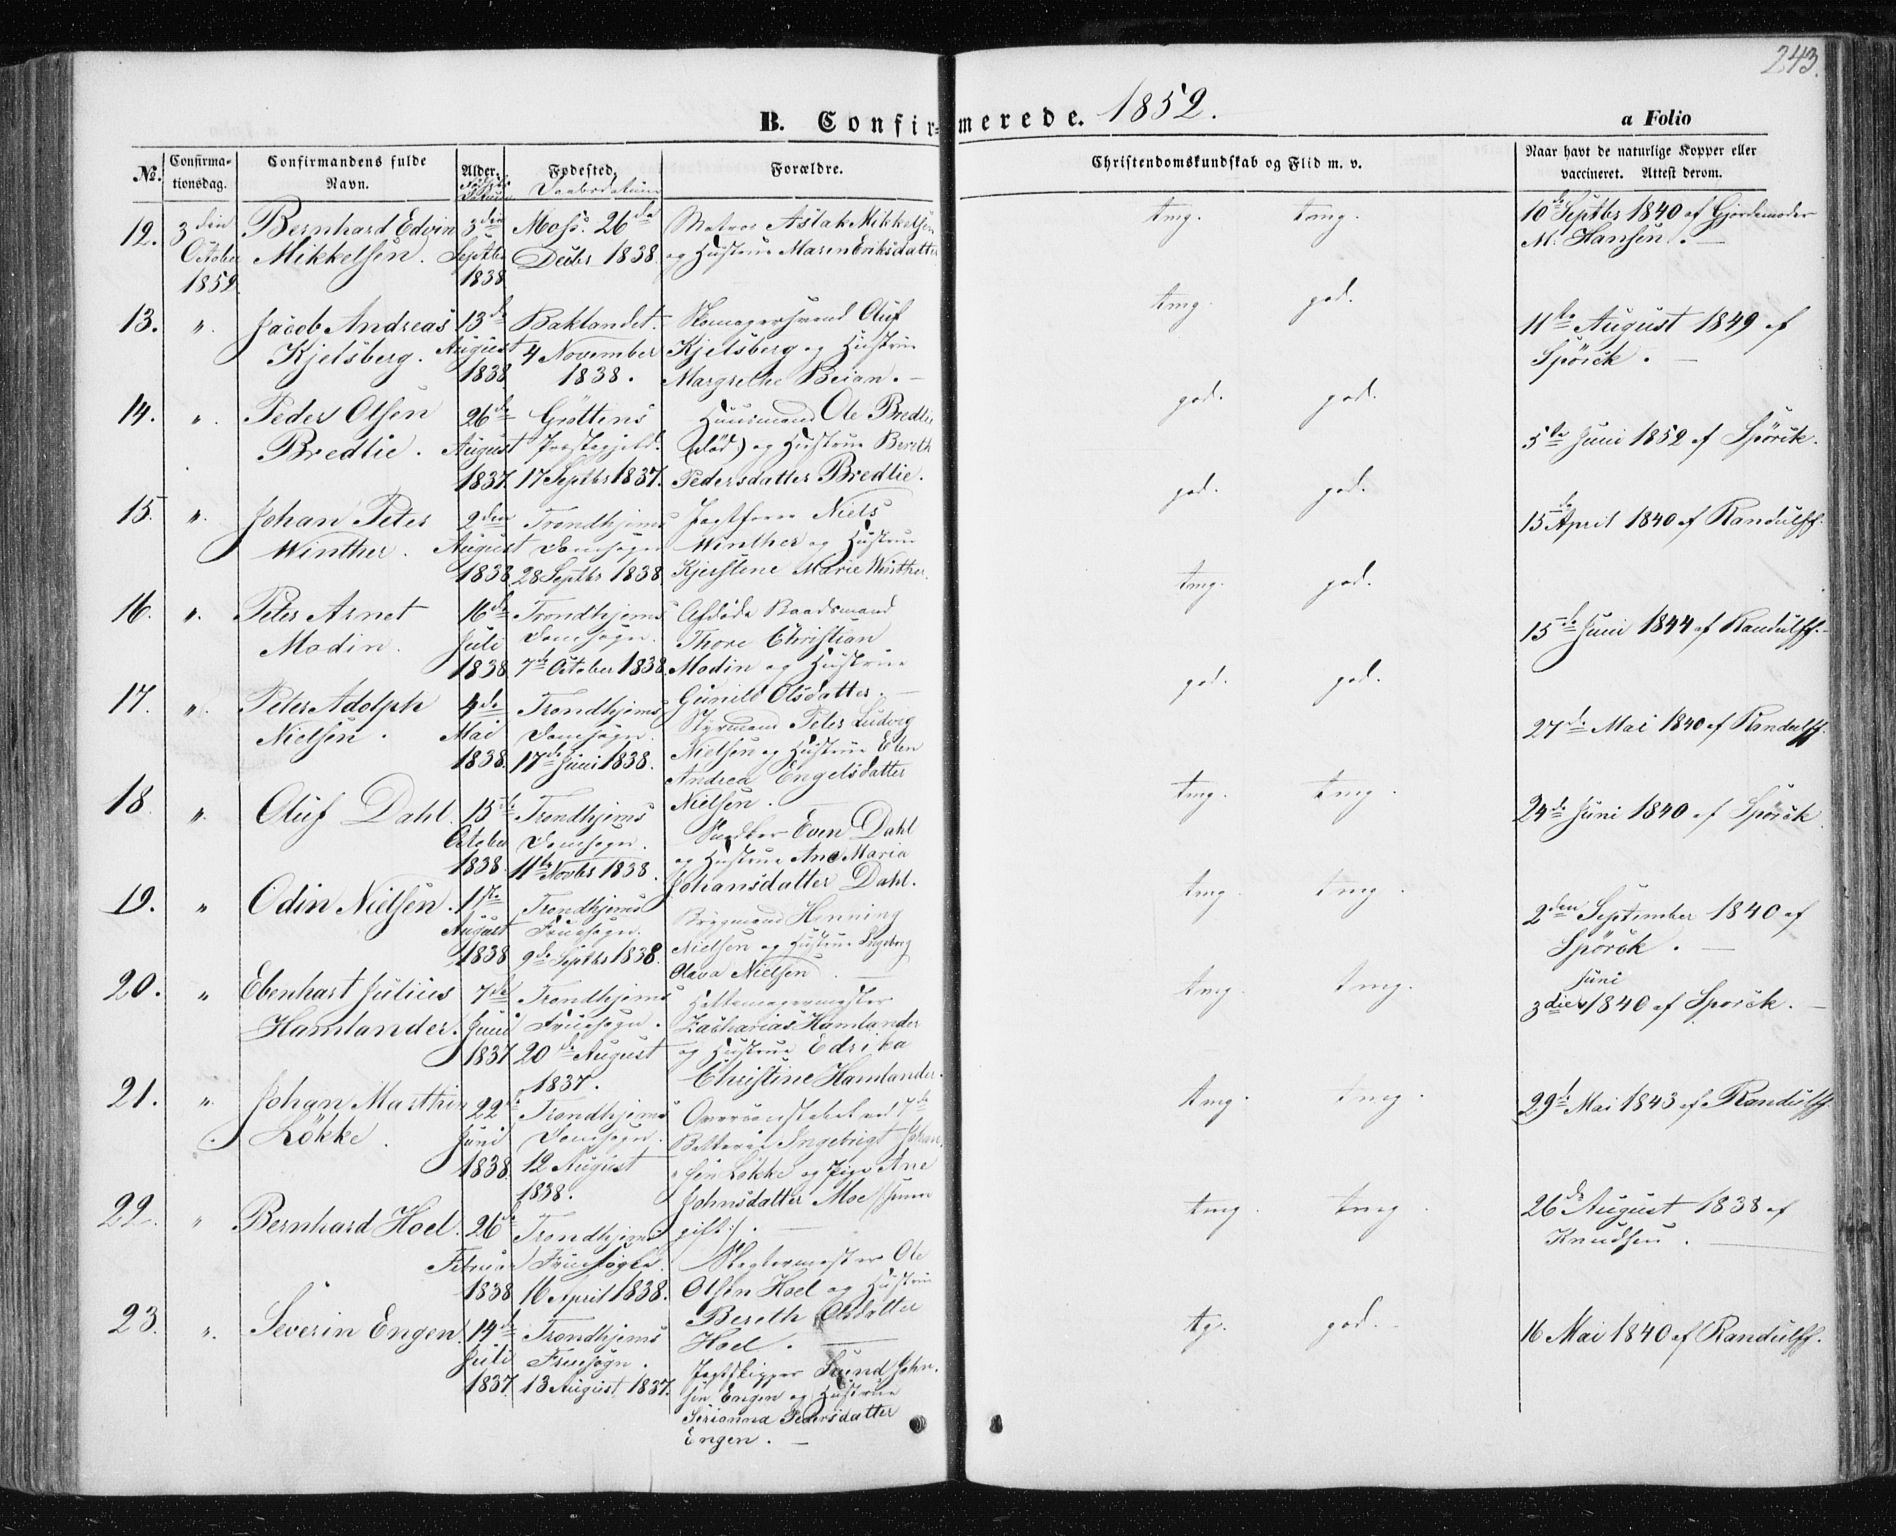 243.
B. Confir= merede. 1852.
a Folio
No.
Confirma-
tionsdag.
Confirmandens fulde
Navn.
Alder.
Fødested.
Daabsdatum
Forældre.
Christendomskundskab og Flid m. v.
Naar havt de naturlige Kopper eller
vaccineret. Attest derom.
12. 3den Bernhard Edvin 3die Moss. 26de Matros Aslak Mikkelsen tmg. tmg. 10de Septbr 1840 af Gjordemoder
October Mikkelsen. Septbr Decbr 1838. og Hustrue Maren Eriksdatter M. Hansen. —
1852 1838
13. ". Jacob Andreas 13de Baklandet. Skomagersvend Oluf tmg. god. 11te August 1849 af
Kjelsberg. August 4 November Kjelsberg og Hustrue Spörck. —
1838 1838. Margrethe Beian. —
14. ". Peder Olsen 26de Grøttens Huusmand Ole Bredlie god. god. 5te Juni 1852 af Spörck.
Bredlie. August Præstegjeld. (død) og Hustrue Bereth
1837. 17 Septbr 1837. Pedersdatter Bredlie.
15. ". Johan Peter 2den Trondhjems Niels god. god. 15de April 1840 af Randulff.
Winther. August Domsogn Winther og Hustrue
1838 28 Septbr 1838 Kjerstine Marie Winther.
16. ". Peter Arnet 16de Trondhjems Afdøde Baadsmand tmg. god. 15de Juni 1844 af Randulff. —
Modin. Juli Domsogn. Thore Christian
1838. 7de October 1838. Modin og Hustrue
Gunild Olsdatter. —
17. ". Peter Adolph 4de Trondhjems Styrmand Peter Ludvig god. god. 27de Mai 1840 af Randulff.
Nielsen. Mai Domsogn. Nielsen og Hustrue Elen
1838. 17de Juni 1838. Andrea Engelsdatter
Nielsen. —
18. ". Oluf Dahl. 15de Trondhjems Snedker Even Dahl tmg. tmg. 24de Juni 1840 af Spörck.
October Domsogn. og Hustrue Ane Maria
1838. 11te Novbr 1838. Johansdatter Dahl.
19. " Odin Nielsen. 1ste Trondhjems Brygmand Henning tmg. tmg. 2den September 1840 af
August Fruesogn. Nielsen og Hustrue Ingeborg Spörck. —
1838 9de Septbr 1838. Olava Nielsen. —
20. " Ebenhart Julius 7de Trondhjems Hattemagermester tmg. tmg. 3die Juni 1840 af Sporck. —
Hamlander. Juni Fruesogn. Zacharias Hamlander
1837 20de August og Hustrue Edrika
1837. Christine Hamlander.
21. ". Johan Marthin 22de Trondhjems Overconstabel ved 7de tmg. tmg. 29de Mai 1843 af Randulff
Løkke. Juni Domsogn. Batterie Ingebrigt Johan
1838. 12 August sen Løkke og Pige Ane
1838. Johnsdatter Moe
gift). —
22. " Bernhard Hoel. 26de Trondhjems Slagtermester Ole tmg. tmg. 26de August 1838 af
Februar Fruesogn. Olsen Hoel og Hustrue Knudsen. —
1838 16 April 1838. Bereth Olsdatter
Hoel. —
23. ". Severin Engen. 14de Trondhjems Jagtskipper Svend John- tg. god. 16 Mai 1840 af Randulff.
Juli Fruesogn. sen Engen og Hustrue
1837. 13 August 1837. Serianna Pedersdatter
Engen. —